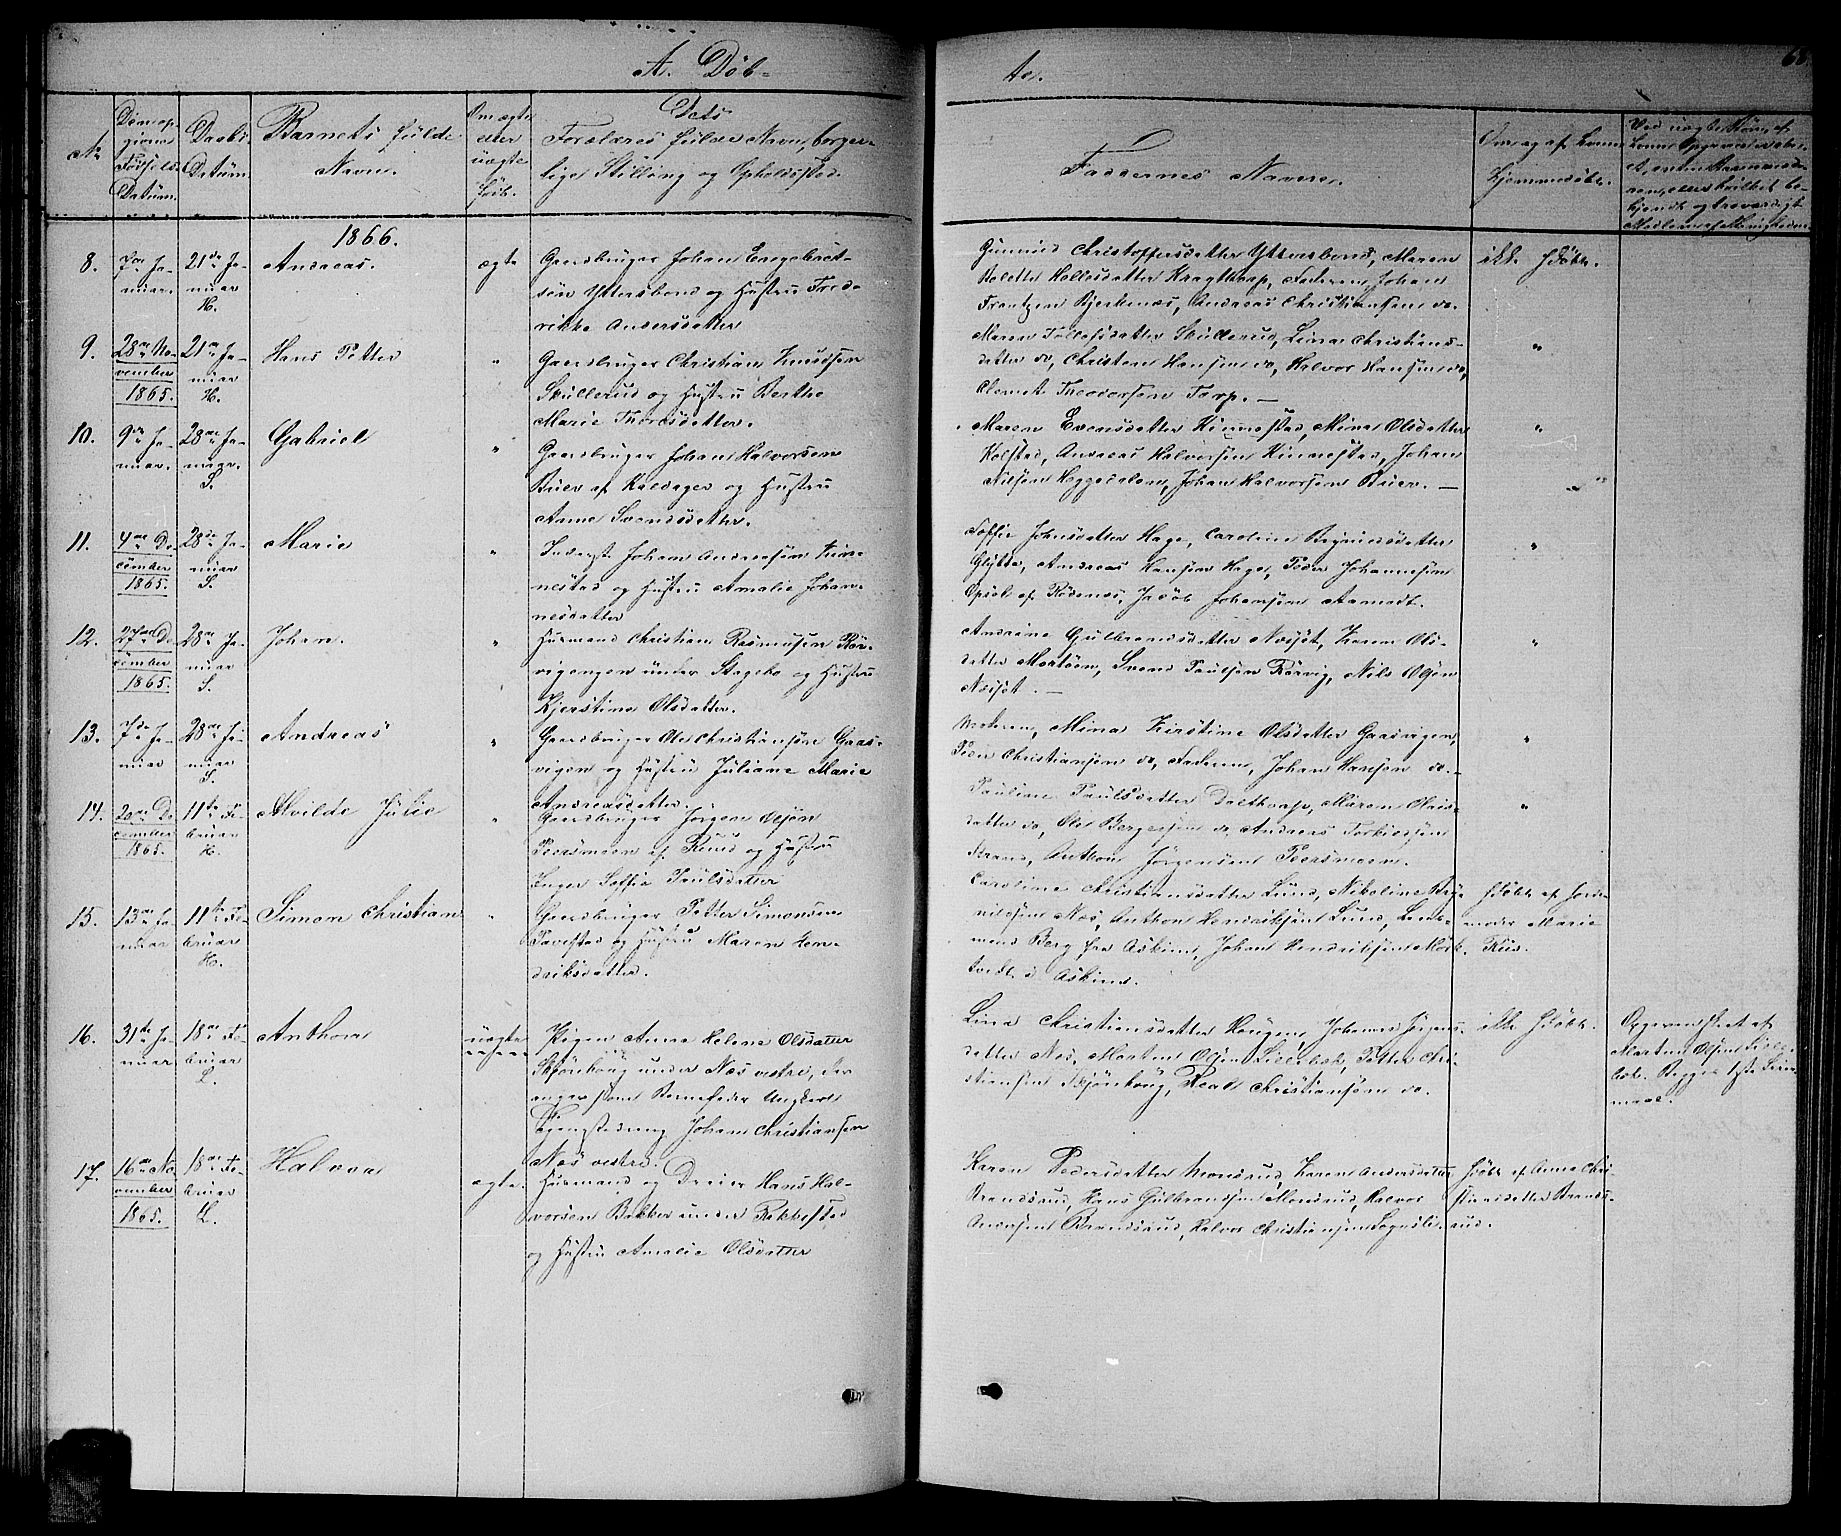 A. Døb-
te.
68.
No
Den op-
givne
Fødsels-
Datum.
Daabs-
Datum.
Barnets fulde
Navn.
Om ægte
eller
uægte
født.
Dets
Forældres fulde Navn, borger-
lige Stilling og Opholdssted.
Faddernes Navne.
Om og af hvem
hjemmedøbt.
1866.
8.
7de Ja-
nuar.
21de Ja-
nuar
H.
Andreas.
ægte
Gaardbruger Johan Engebret-
sen Yttersbond og Hustru Fred-
rikke Andersdatter
Gunnild Christoffersdatter Yttersbond, Maren
Helletsdatter Kragttorp, Faderen, Johan
Frantzen Bjerkenæs, Andreas Christiansen do.
ikke hjdøbt.
9.
28de No-
vember
1865.
21de Ja-
nuar
H.
Hans Petter
"
Gaardbruger Christian Knudsen
Skullerud og Hustru Berthe
Marie Thoresdatter.
Maren Tollefsdatter Skullerud, Lina Christians-
datter do, Christen Hansen do, Halvor Hansen do,
Clemet Theodorsen Torp. —
"
10.
9de Ja-
nuar.
28de Ja-
nuar.
S.
Gabriel
"
Gaardbruger Johan Halvorsen
Buer af Kaldager og Hustru
Anne Svendsdatter.
Maren Evensdatter Kinnestad, Mina Olsdatter
Kolstad, Andreas Halvorsen Kinnestad, Johan
Nilsen Heggedalen, Johan Halvorsen Buer. —
"
11.
4de De-
cember
1865.
28de Ja-
nuar
S.
Marie
"
Inderst Johan Andreasen Kin-
nestad og Hustru Amalie Johan-
nesdatter
Soffie Johnsdatter Hage, Caroline
Andreas Hansen Hage, Peder Johannesen
Opsal af Rødenes, Jacob Johansen
"
12.
27de De-
cember
1865.
28de Ja-
nuar
S.
Johan.
"
Husmand Christian Rasmussen Rør-
vigengen under Stegebo og Hustru
Kjerstine Olsdatter.
Andrine Gulbrandsdatter Næsset, Karen Ols-
datter Mortøen, Svend Paulsen Rørvig, Nils Olsen
Næsset. —
"
13.
7de Ja-
nuar
28de Ja-
nuar
S.
Andreas
"
Gaardbruger Ole Christiansen Gaas-
vigen og Hustru Juliane Marie
Andreasdatter.
Moderen, Mina Kirstine Olsdatter Gaasvigen,
Peder Christiansen do, Faderen, Johan Hansen do.—
"
14.
20de De-
cember
1865.
11te Fe-
bruar
H.
Alvilde Julie
"
Gaardbruger Jørgen Olsen
Peersmoen af Ruud og Hustru
Inger Soffie Paulsdatter
Pauline Paulsdatter Dalttorp, Maren Olais-
datter do, Ole Bergersen do, Andreas Torkildsen
Strand, Anthon Jørgensen Peersmoen.
"
15.
13de Ja-
nuar
11te Fe-
bruar
H.
Simon Christian
"
Gaardbruger Petter Simonsen
Tavestad og Hustru Maren Hen-
driksdatter.
Caroline Christiansdatter Lund, Nikoline
Næs, Anthon Hendriksen Lund,
Berg fra Askim, Johan Hendriksen
Askim.
hjdøbt af Jord-
moder Marie
Ruud.
16.
31te Ja-
nuar
18de Fe-
bruar
L.
Anthon
uægte
Pigen Anne Helene Olsdatter
Skjønhoug under Næs vestre, der
angev som Barnefader Ungkarl
Johan Christiansen
Næs vestre.
Lina Christiansdatter Haugen, Johanne
datter Næs, Martin Olsen Lillebek, Petter Chri-
stiansen Skjønhoug, Christiansen do.
ikke hjdøbt.
Opgaven skeet af
Martin Olsen Lille-
bek. Begges 1ste Leier-
maal.
17.
16de No-
vember
1865.
18de Fe-
bruar
L.
Halvor
ægte.
Husmand og Dreier Hans Hal-
vorsen Bakke under Rakkestad
og Hustru Amalie Olsdatter
Karen Pedersdatter Monsrud, Karen Andersdatter
Brandsrud, Hans Gulbrandsen Monsrud, Halvor
Andersen Brandsrud, Halvor Christiansen
hjdøbt af Anne Chri-
stiansdatter Brands-
rud.